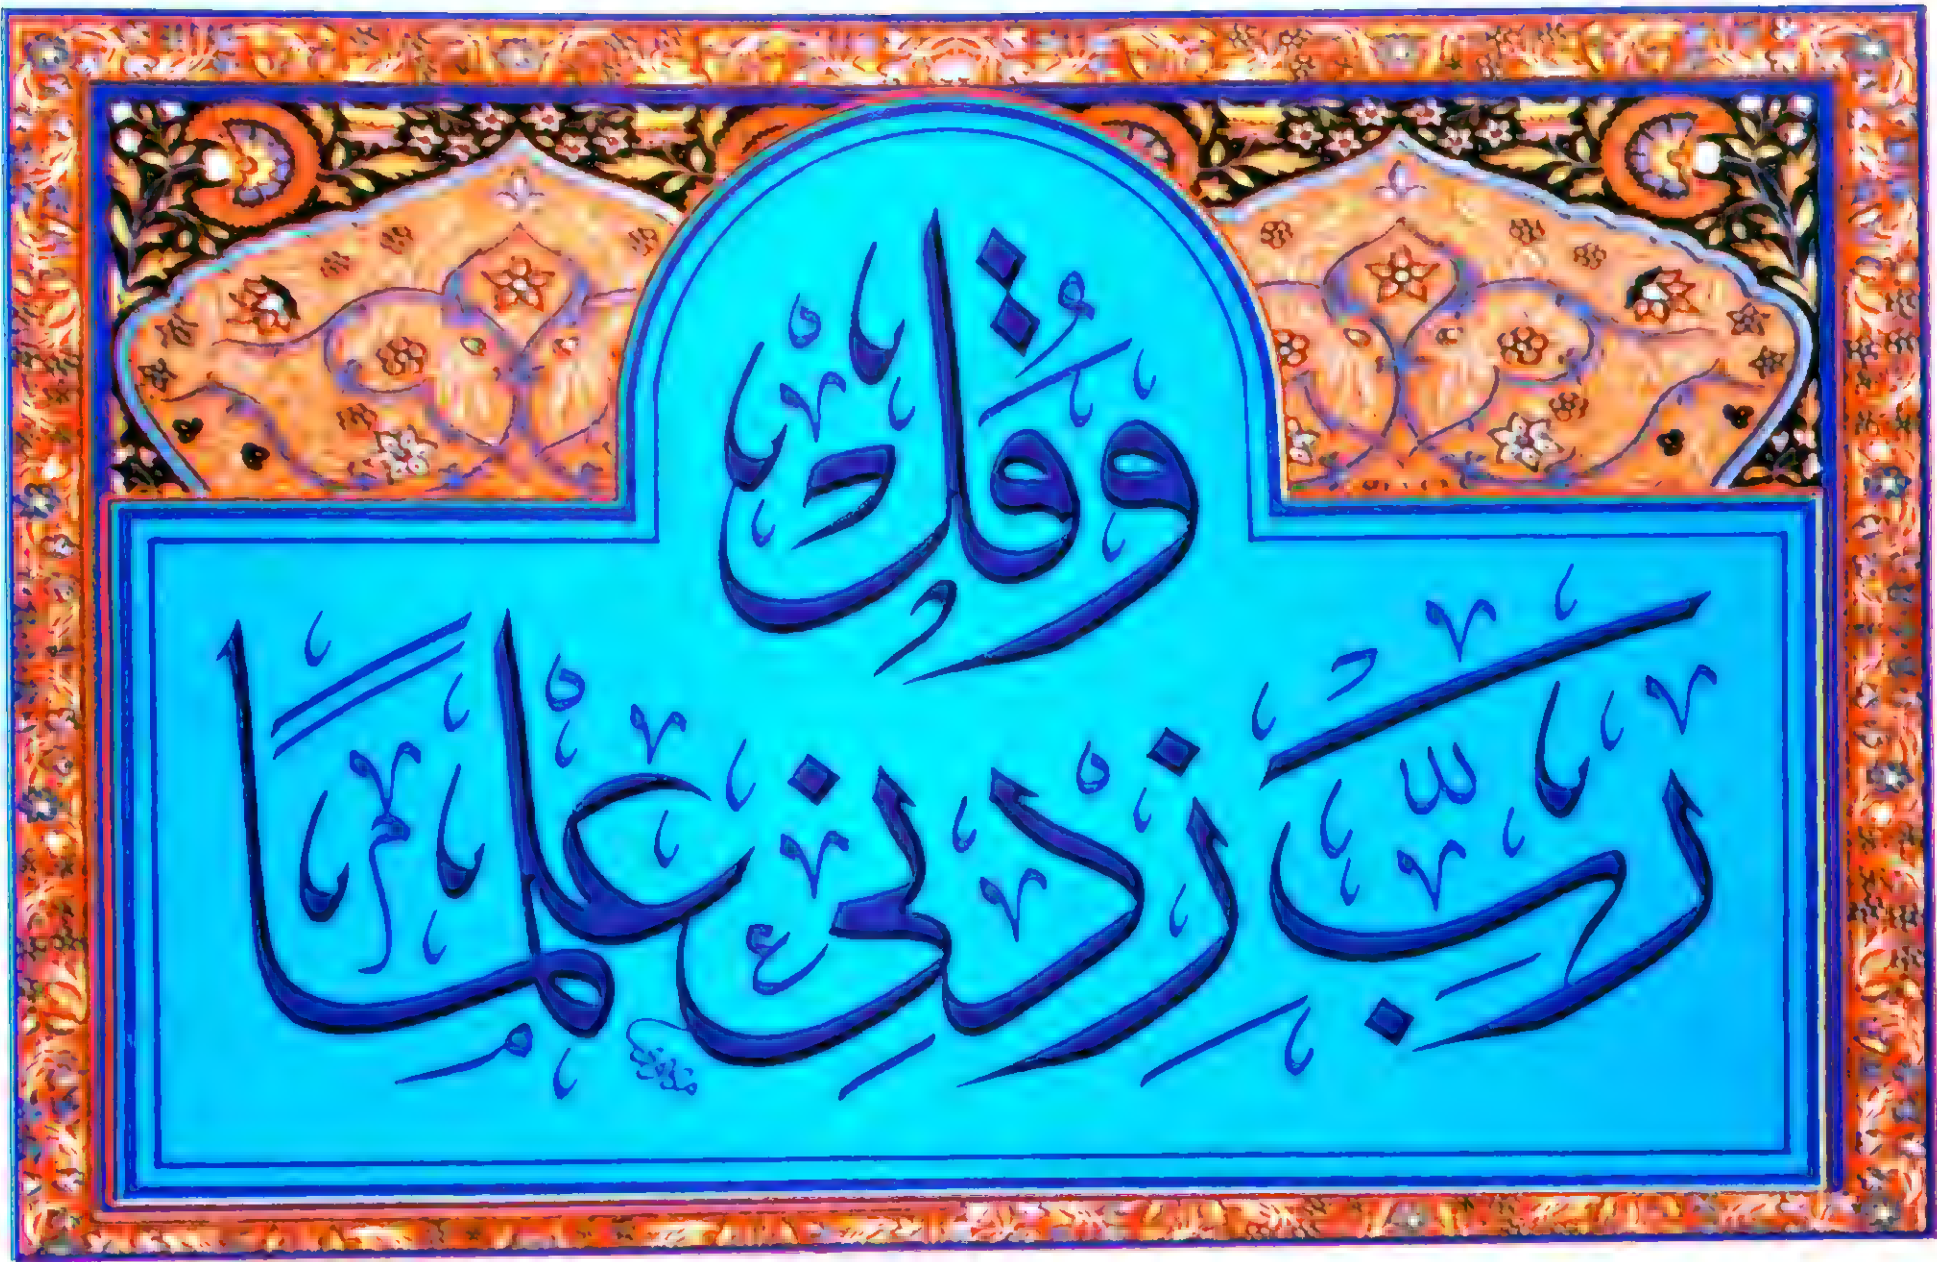 وَقُل
رَبِّ زِدْنِي عِلْمًا